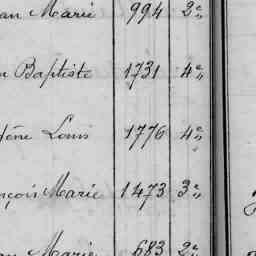 an Marie 994 2e
n Baptiste 1731 4e
gène Louis 1776 4e
nçois Marie 1473 3e
an Marie 683 2e